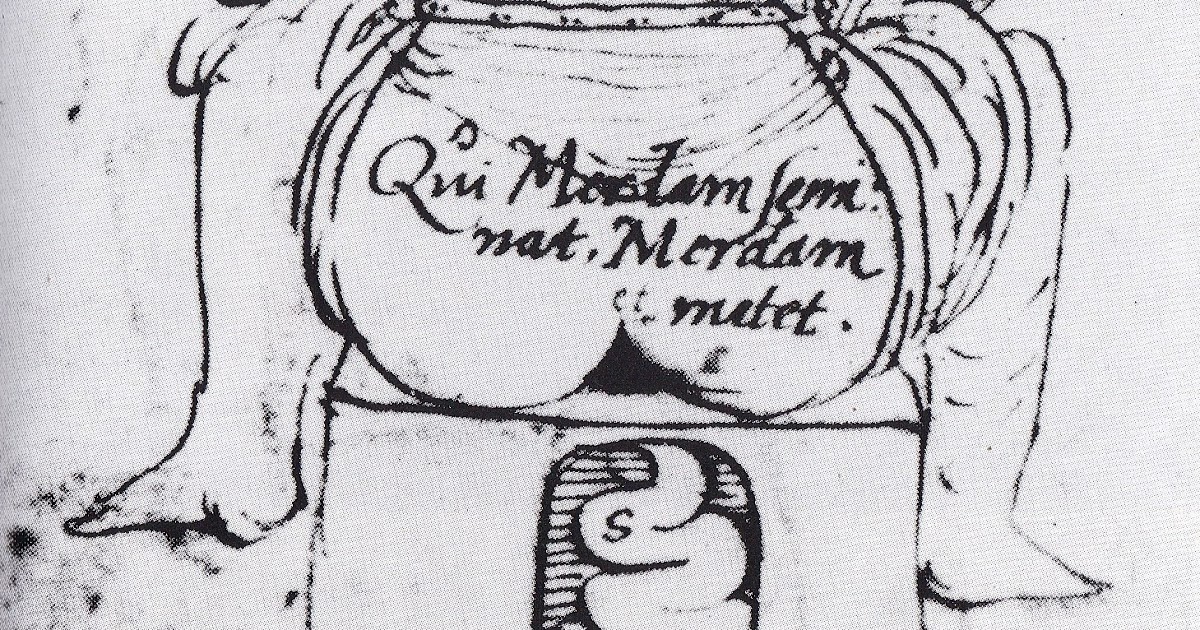 Qui Merdam semi
nat, Merdam
et metet.
S